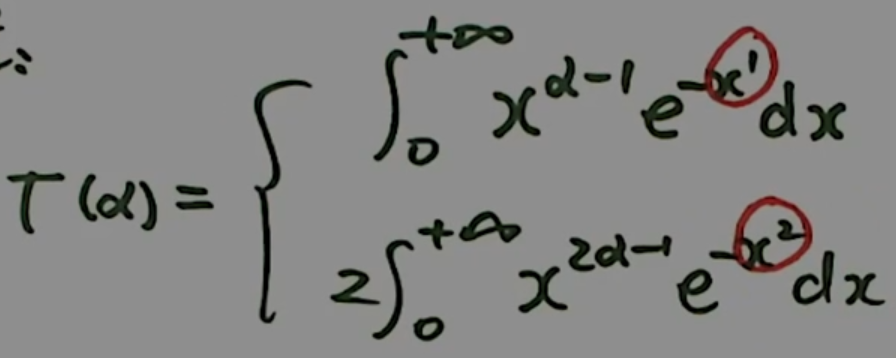 ∫₀^{+∞} x^{α-1} e^{-x^1} dx
T(α) = {
2∫₀^{+∞} x^{2α-1} e^{-x^2} dx